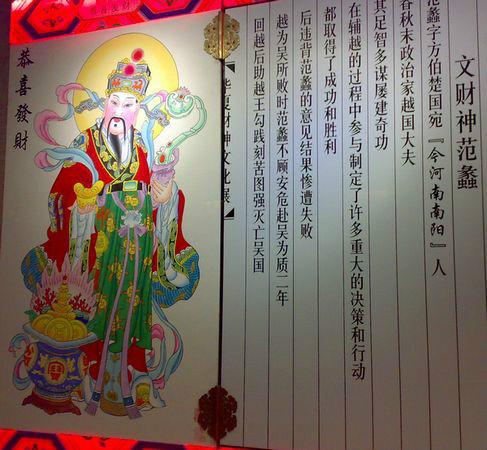 文财神范蠡
范蠡字方伯楚国宛『今河南南阳』人
春秋末政治家越国大夫
其足智多谋屡建奇功
在辅越的过程中参与制定了许多重大的决策和行动
都取得了成功和胜利
后违背范蠡的意见结果惨遭失败
越为吴所败时范蠡不顾安危赴吴为质二年
回越后助越王勾践刻苦图强灭亡吴国
『华夏财神文化展』
恭喜發財